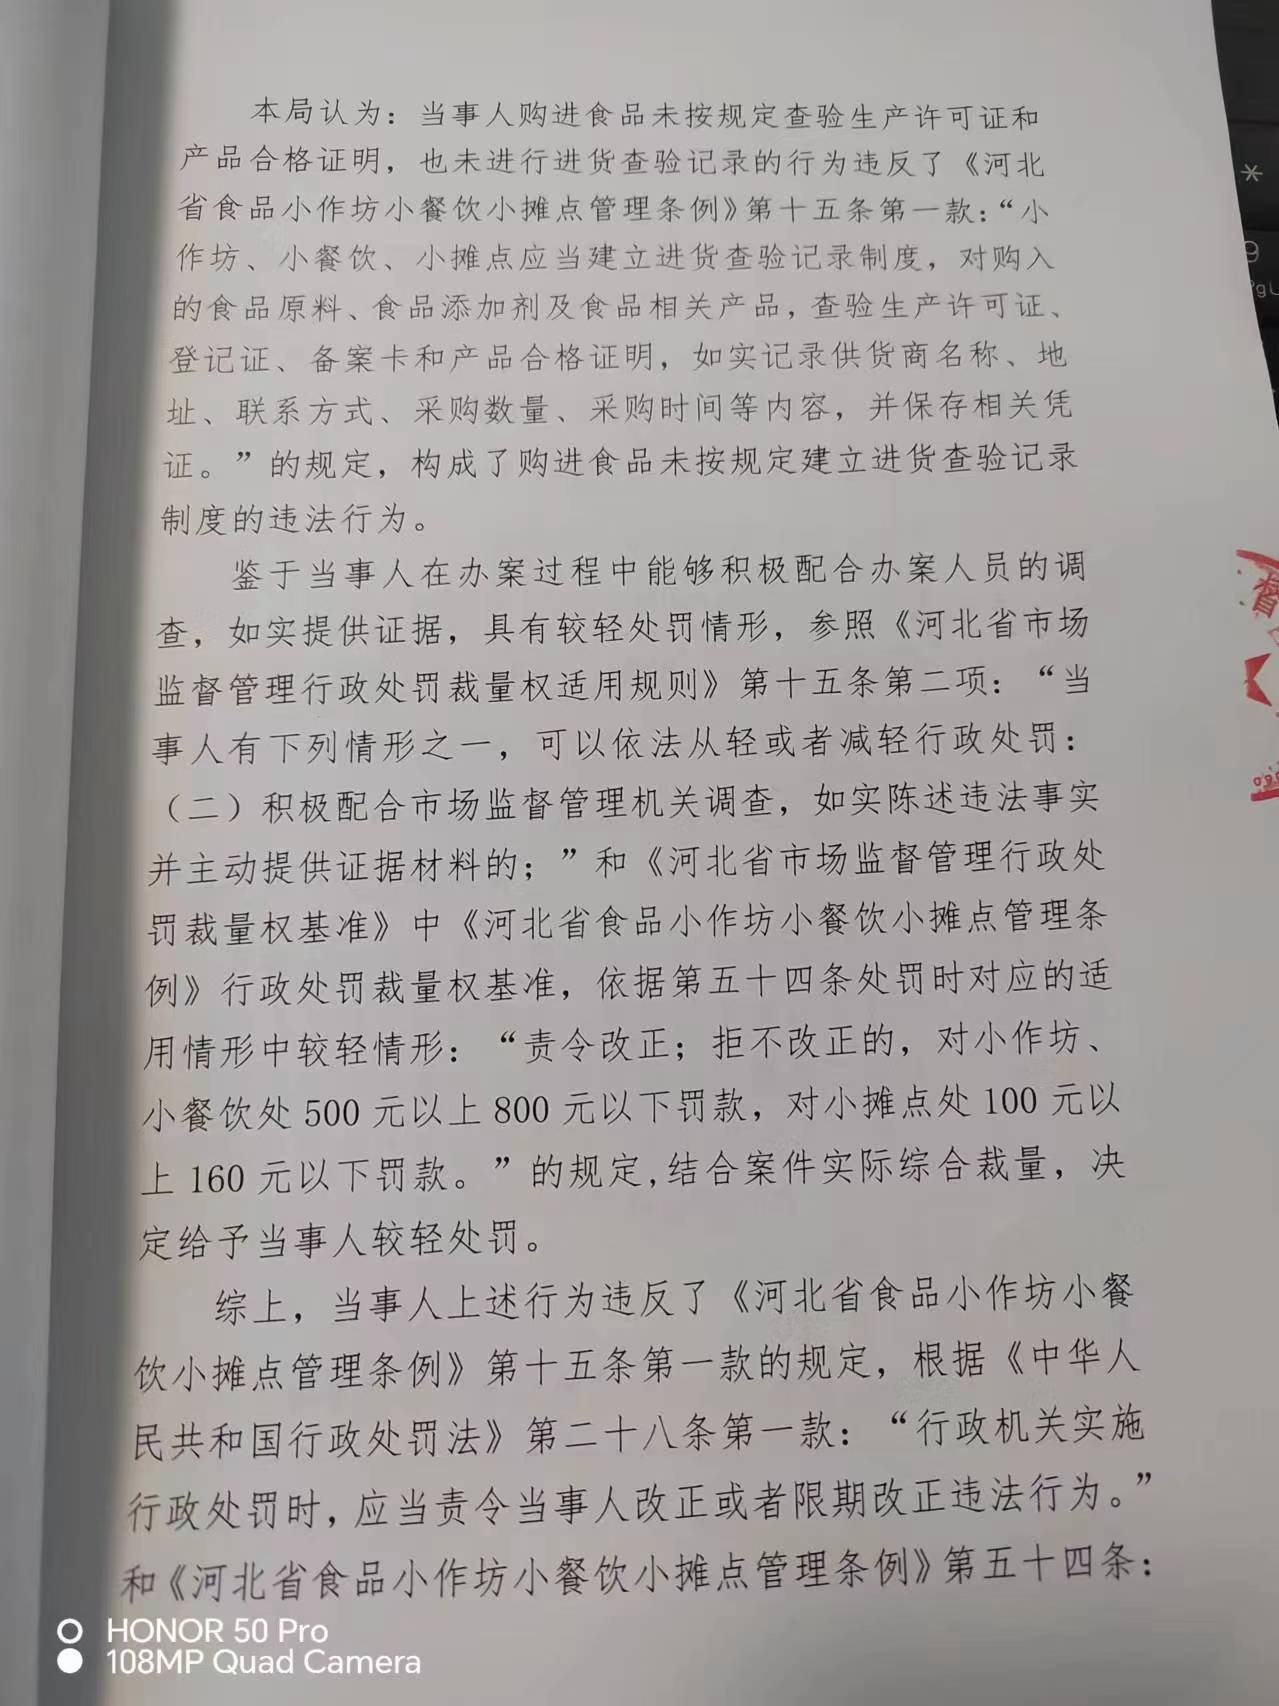 本局认为：当事人购进食品未按规定查验生产许可证和
产品合格证明，也未进行进货查验记录的行为违反了《河北
省食品小作坊小餐饮小摊点管理条例》第十五条第一款：“小
作坊、小餐饮、小摊点应当建立进货查验记录制度，对购入
的食品原料、食品添加剂及食品相关产品，查验生产许可证、
登记证、备案卡和产品合格证明，如实记录供货商名称、地
址、联系方式、采购数量、采购时间等内容，并保存相关凭
证。”的规定，构成了购进食品未按规定建立进货查验记录
制度的违法行为。
鉴于当事人在办案过程中能够积极配合办案人员的调
查，如实提供证据，具有较轻处罚情形，参照《河北省市场
监督管理行政处罚裁量权适用规则》第十五条第二项：“当
事人有下列情形之一，可以依法从轻或者减轻行政处罚：
（二）积极配合市场监督管理机关调查，如实陈述违法事实
并主动提供证据材料的；”和《河北省市场监督管理行政处
罚裁量权基准》中《河北省食品小作坊小餐饮小摊点管理条
例》行政处罚裁量权基准，依据第五十四条处罚时对应的适
用情形中较轻情形：“责令改正；拒不改正的，对小作坊、
小餐饮处500元以上800元以下罚款，对小摊点处100元以
上160元以下罚款。”的规定,结合案件实际综合裁量，决
定给予当事人较轻处罚。
综上，当事人上述行为违反了《河北省食品小作坊小餐
饮小摊点管理条例》第十五条第一款的规定，根据《中华人
民共和国行政处罚法》第二十八条第一款：“行政机关实施
行政处罚时，应当责令当事人改正或者限期改正违法行为。”
和《河北省食品小作坊小餐饮小摊点管理条例》第五十四条：
督
*
9
HONOR 50 Pro
108MP Quad Camera